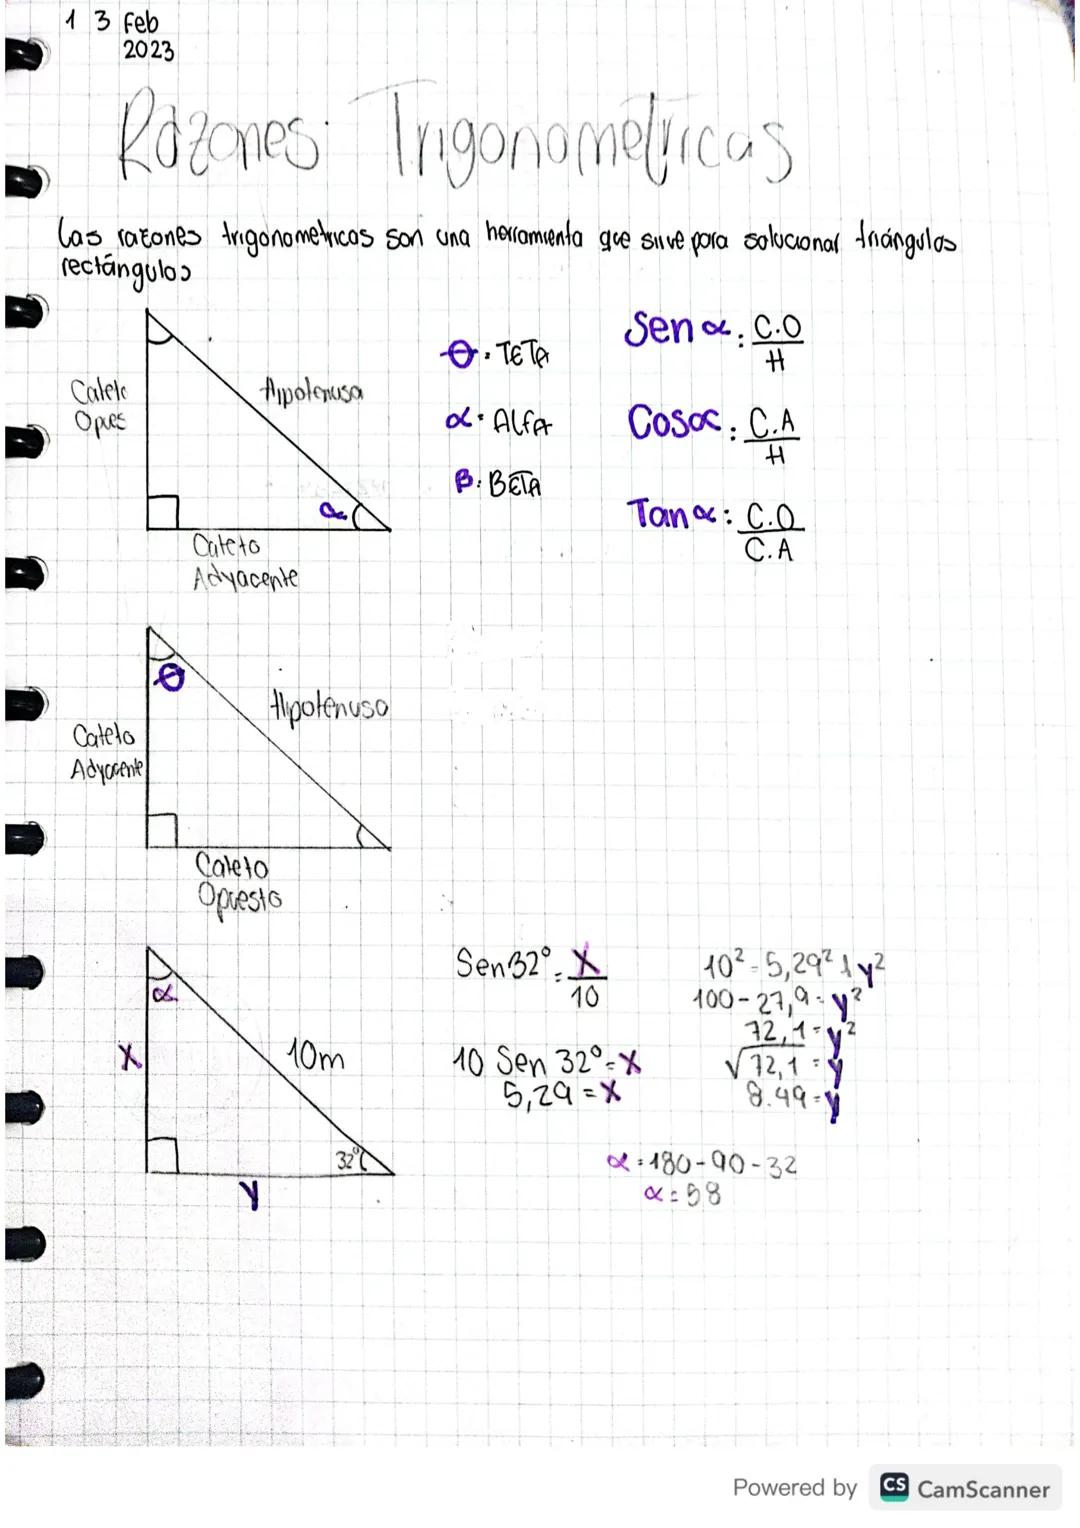 13 Feb
2023
Razones Trigonometricas
Las razones trigonometricas son una herramienta que sirve para solucionar triángulos
rectángulos
Cateto
Opues
Hipotenusa
α
Cateto
Adyacente
θ: TETA
α: AlfA
β: BETA
Sen α: C.O
H
Cosα: C.A
H
Tan α: C.O
C.A
θ
Hipotenusa
Cateto
Adyacente
Cateto
Opuesto
α
X
10m
32°
y
Sen 32° = X
10
10 Sen 32° = X
5,29 = X
10² = 5,29² + y²
100 - 27,9 = y²
72,1 = y²
√72,1 = y
8.49 = y
α = 180-90-32
α = 58
Powered by CS CamScanner